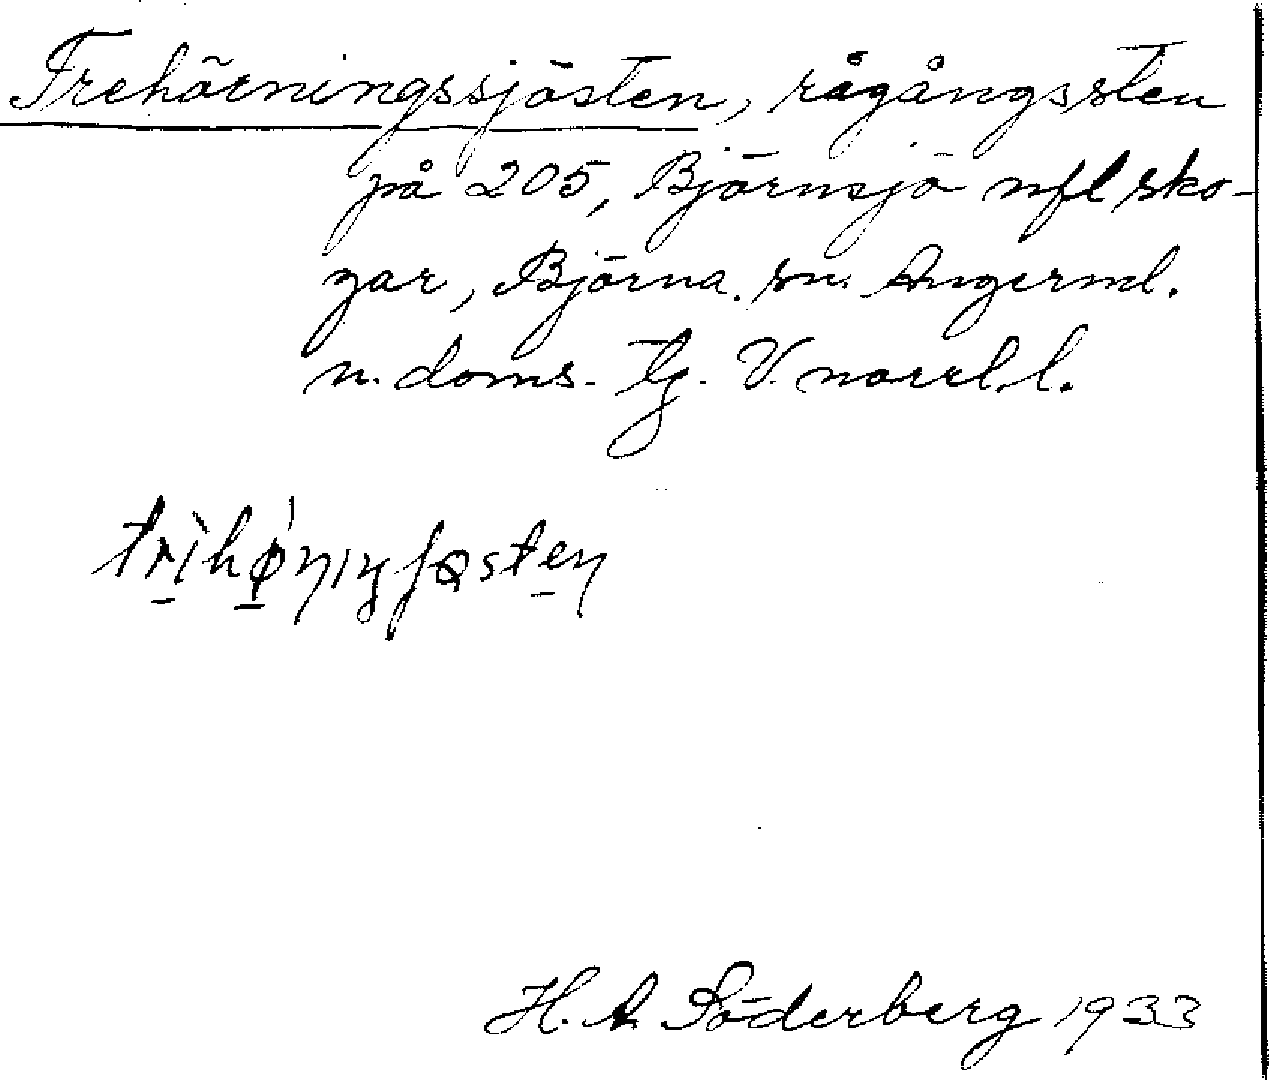 Trehörningssjösten, rågångssten
på 205, Björnsjö m fl sko-
gar, Björna. sn. Ångerml.
n. doms. tg. V. norrl. l.
H. A. Söderberg 1933